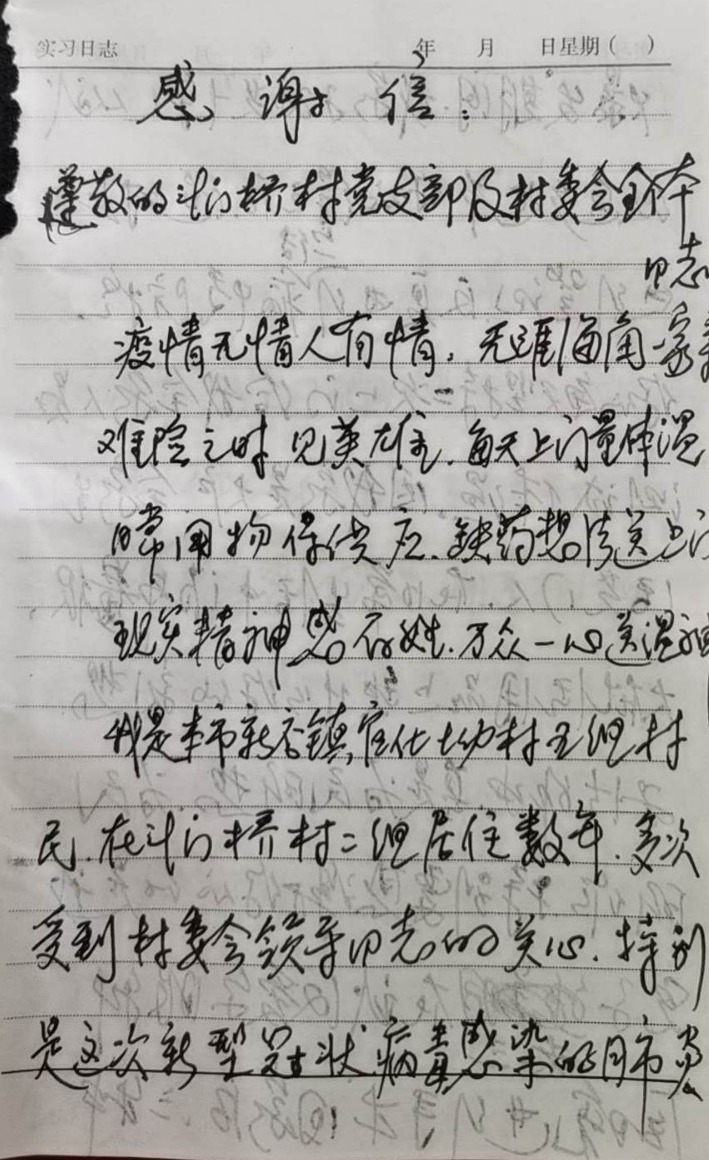 实习日志 年 月 日星期( )
感谢信:
尊敬的斗门桥村党支部及村委会全体
同志
疫情无情人有情,天涯海角一家亲
难险之时见英雄.每天上门量体温
日常用物保供应.缺药想法送上门
现实精神感百姓.万众一心送温
我是本市新谷镇官化村五组村
民.在斗门桥村二组居住数年.多次
受到村委会领导同志的关心.特别
是这次新型冠状病毒感染的肺炎